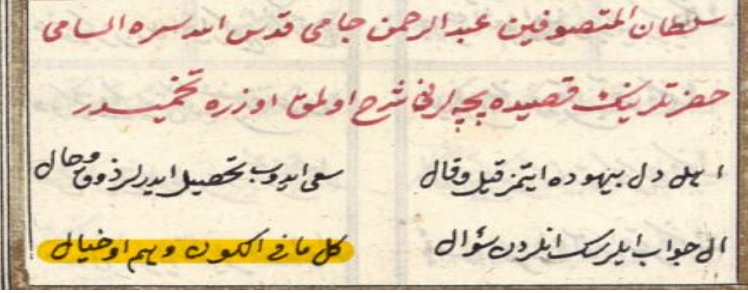 سلطان المتصوفين عبد الرحمن جامى قدس الله سره السامى
حضرتلرينك قصيده پچه لرنى شرح اولمق اوزره تخميسدر
اهل دل بيهوده ايتمز قيل وقال سعى ايدوب تحصيل ايدرلر ذوق وحال
ال جواب ايلرسك انلردن سؤال كل ما فى الكون وهم او خيال